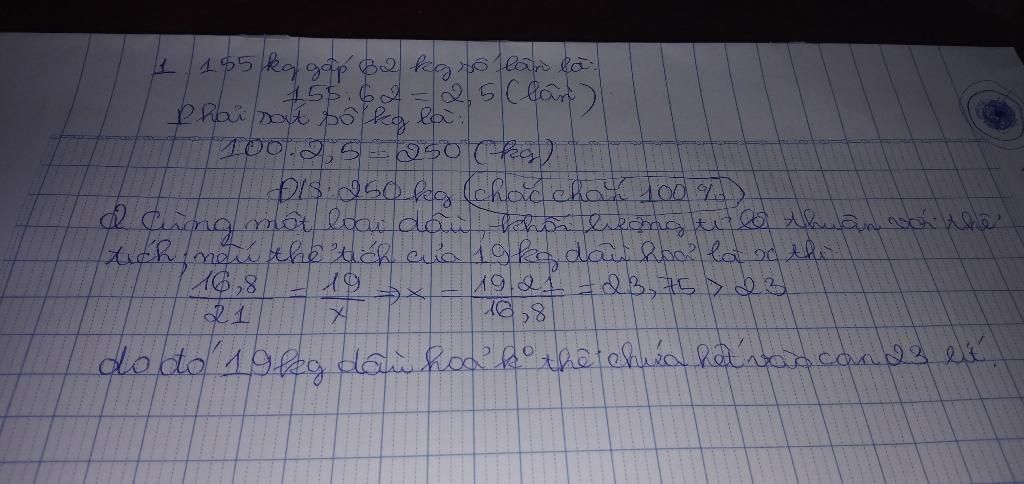 1. 155 kg gấp 62 kg số lần là:
155:62 = 2,5 (lần)
Phải xát số kg là:
100.2,5 = 250 (kg)
Đ/S: 250 kg (chắc chắn 100 %)
2 Cùng một loại dầu, khối lượng tỉ lệ thuận với thể
tích, nếu thể tích của 19 kg dầu hoả là x thì:
16,8/21 = 19/x => x = 19.21/16,8 = 23,75 > 23
do đó 19 kg dầu hoả k° thể chứa hết vào can 23 lít.